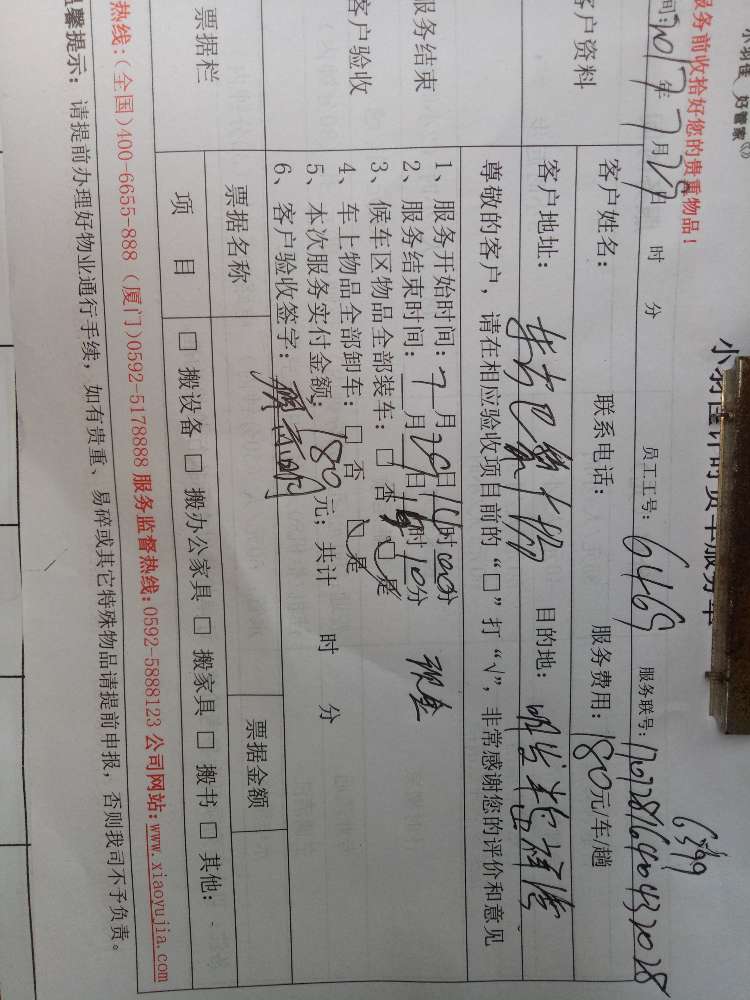 小羽佳 好管家
小羽佳计时货车服务单
服务前收拾好您的贵重物品！
6399
间:2017年7月29日 时 分 员工工号: 6469 服务联号:
客户资料
客户姓名: 联系电话: 服务费用: 180元/车/趟
客户地址: 东方巴黎广场 目的地:
尊敬的客户，请在相应验收项目前的“□”打“√”，非常感谢您的评价和意见
服务结束
客户验收
1、服务开始时间: 7月29日16时00分
2、服务结束时间: 月29日 时10分 现金
3、候车区物品全部装车: □ 否 □ 是
4、车上物品全部卸车: □ 否 □ 是
5、本次服务实付金额: 180元; 共计 时 分
6、客户验收签字:
票据栏
票据名称 票据金额
元
项 目 □ 搬设备 □ 搬办公家具 □ 搬家具 □ 搬书 □ 其他:
热线:(全国)400-6655-888 (厦门)0592-5178888 服务监督热线:0592-5888123 公司网站:www.xiaoyujia.com
温馨提示: 请提前办理好物业通行手续，如有贵重、易碎或其它特殊物品请提前申报，否则我司不予负责。